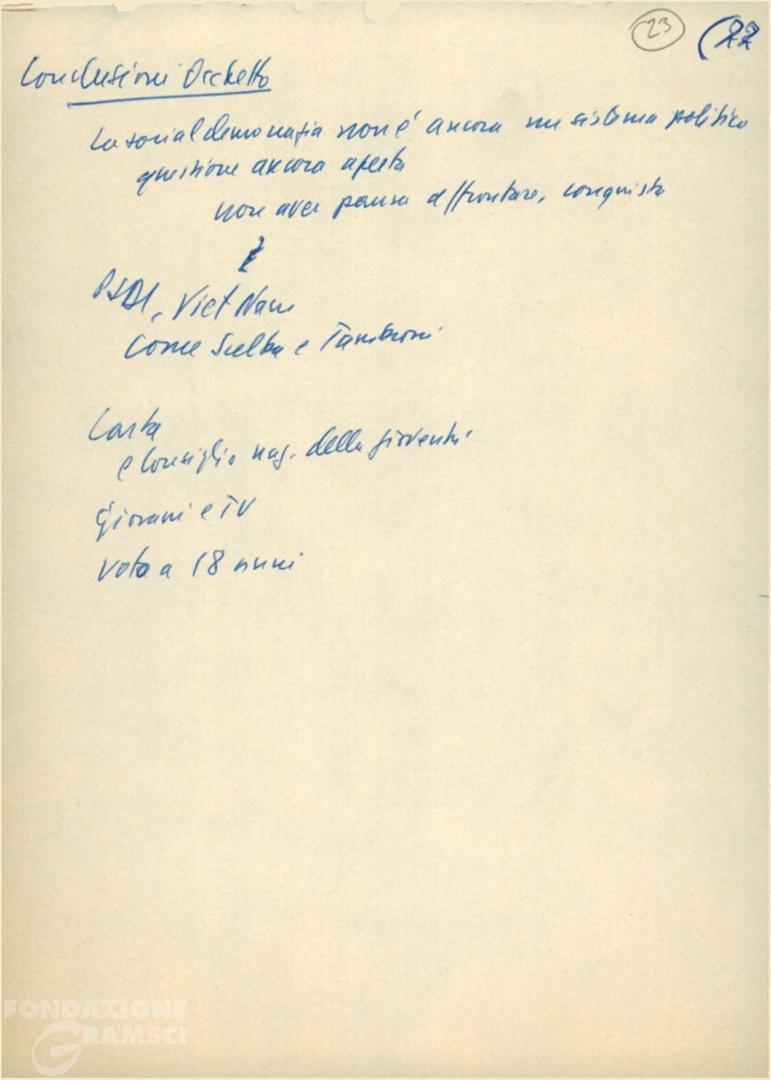 23 (22
Conclusioni Occhetto
La socialdemocrazia non è ancora un sistema politico
questione ancora aperta
non aver paura affrontare, conquista
PSDI, Viet Nam
Come Scelba e Tambroni
Carta
e Consiglio naz. della gioventù
Giovani e TV
Voto a 18 anni
FONDAZIONE
GRAMSCI
onlus